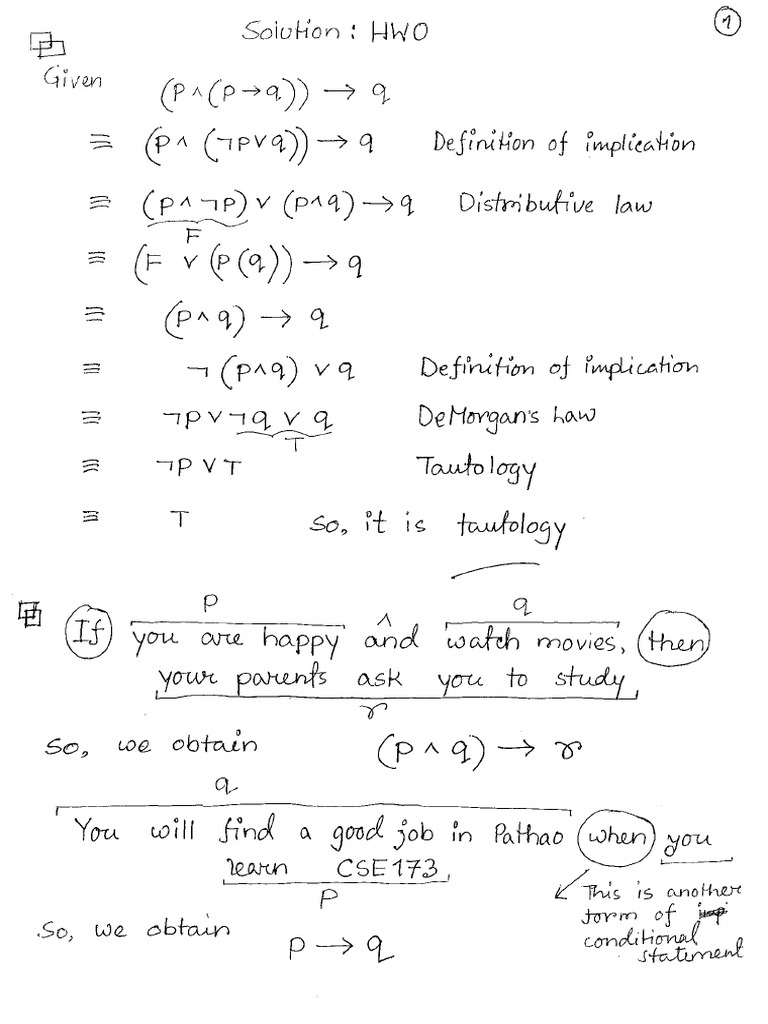 Solution: HWO
1
Given
(p ∧ (p → q)) → q
≡ (p ∧ (¬p ∨ q)) → q Definition of implication
≡ (p ∧ ¬p) ∨ (p ∧ q) → q Distributive law
F
≡ (F ∨ (p(q)) → q
≡ (p ∧ q) → q
≡ ¬(p ∧ q) ∨ q Definition of implication
≡ ¬p ∨ ¬q ∨ q DeMorgan's Law
T
≡ ¬p ∨ T Tautology
≡ T So, it is tautology
p ∧ q
If you are happy and watch movies, then
your parents ask you to study
r
So, we obtain (p ∧ q) → r
q
You will find a good job in Pathao when you
learn CSE173
p
This is another
form of
conditional
statement
So, we obtain
p → q